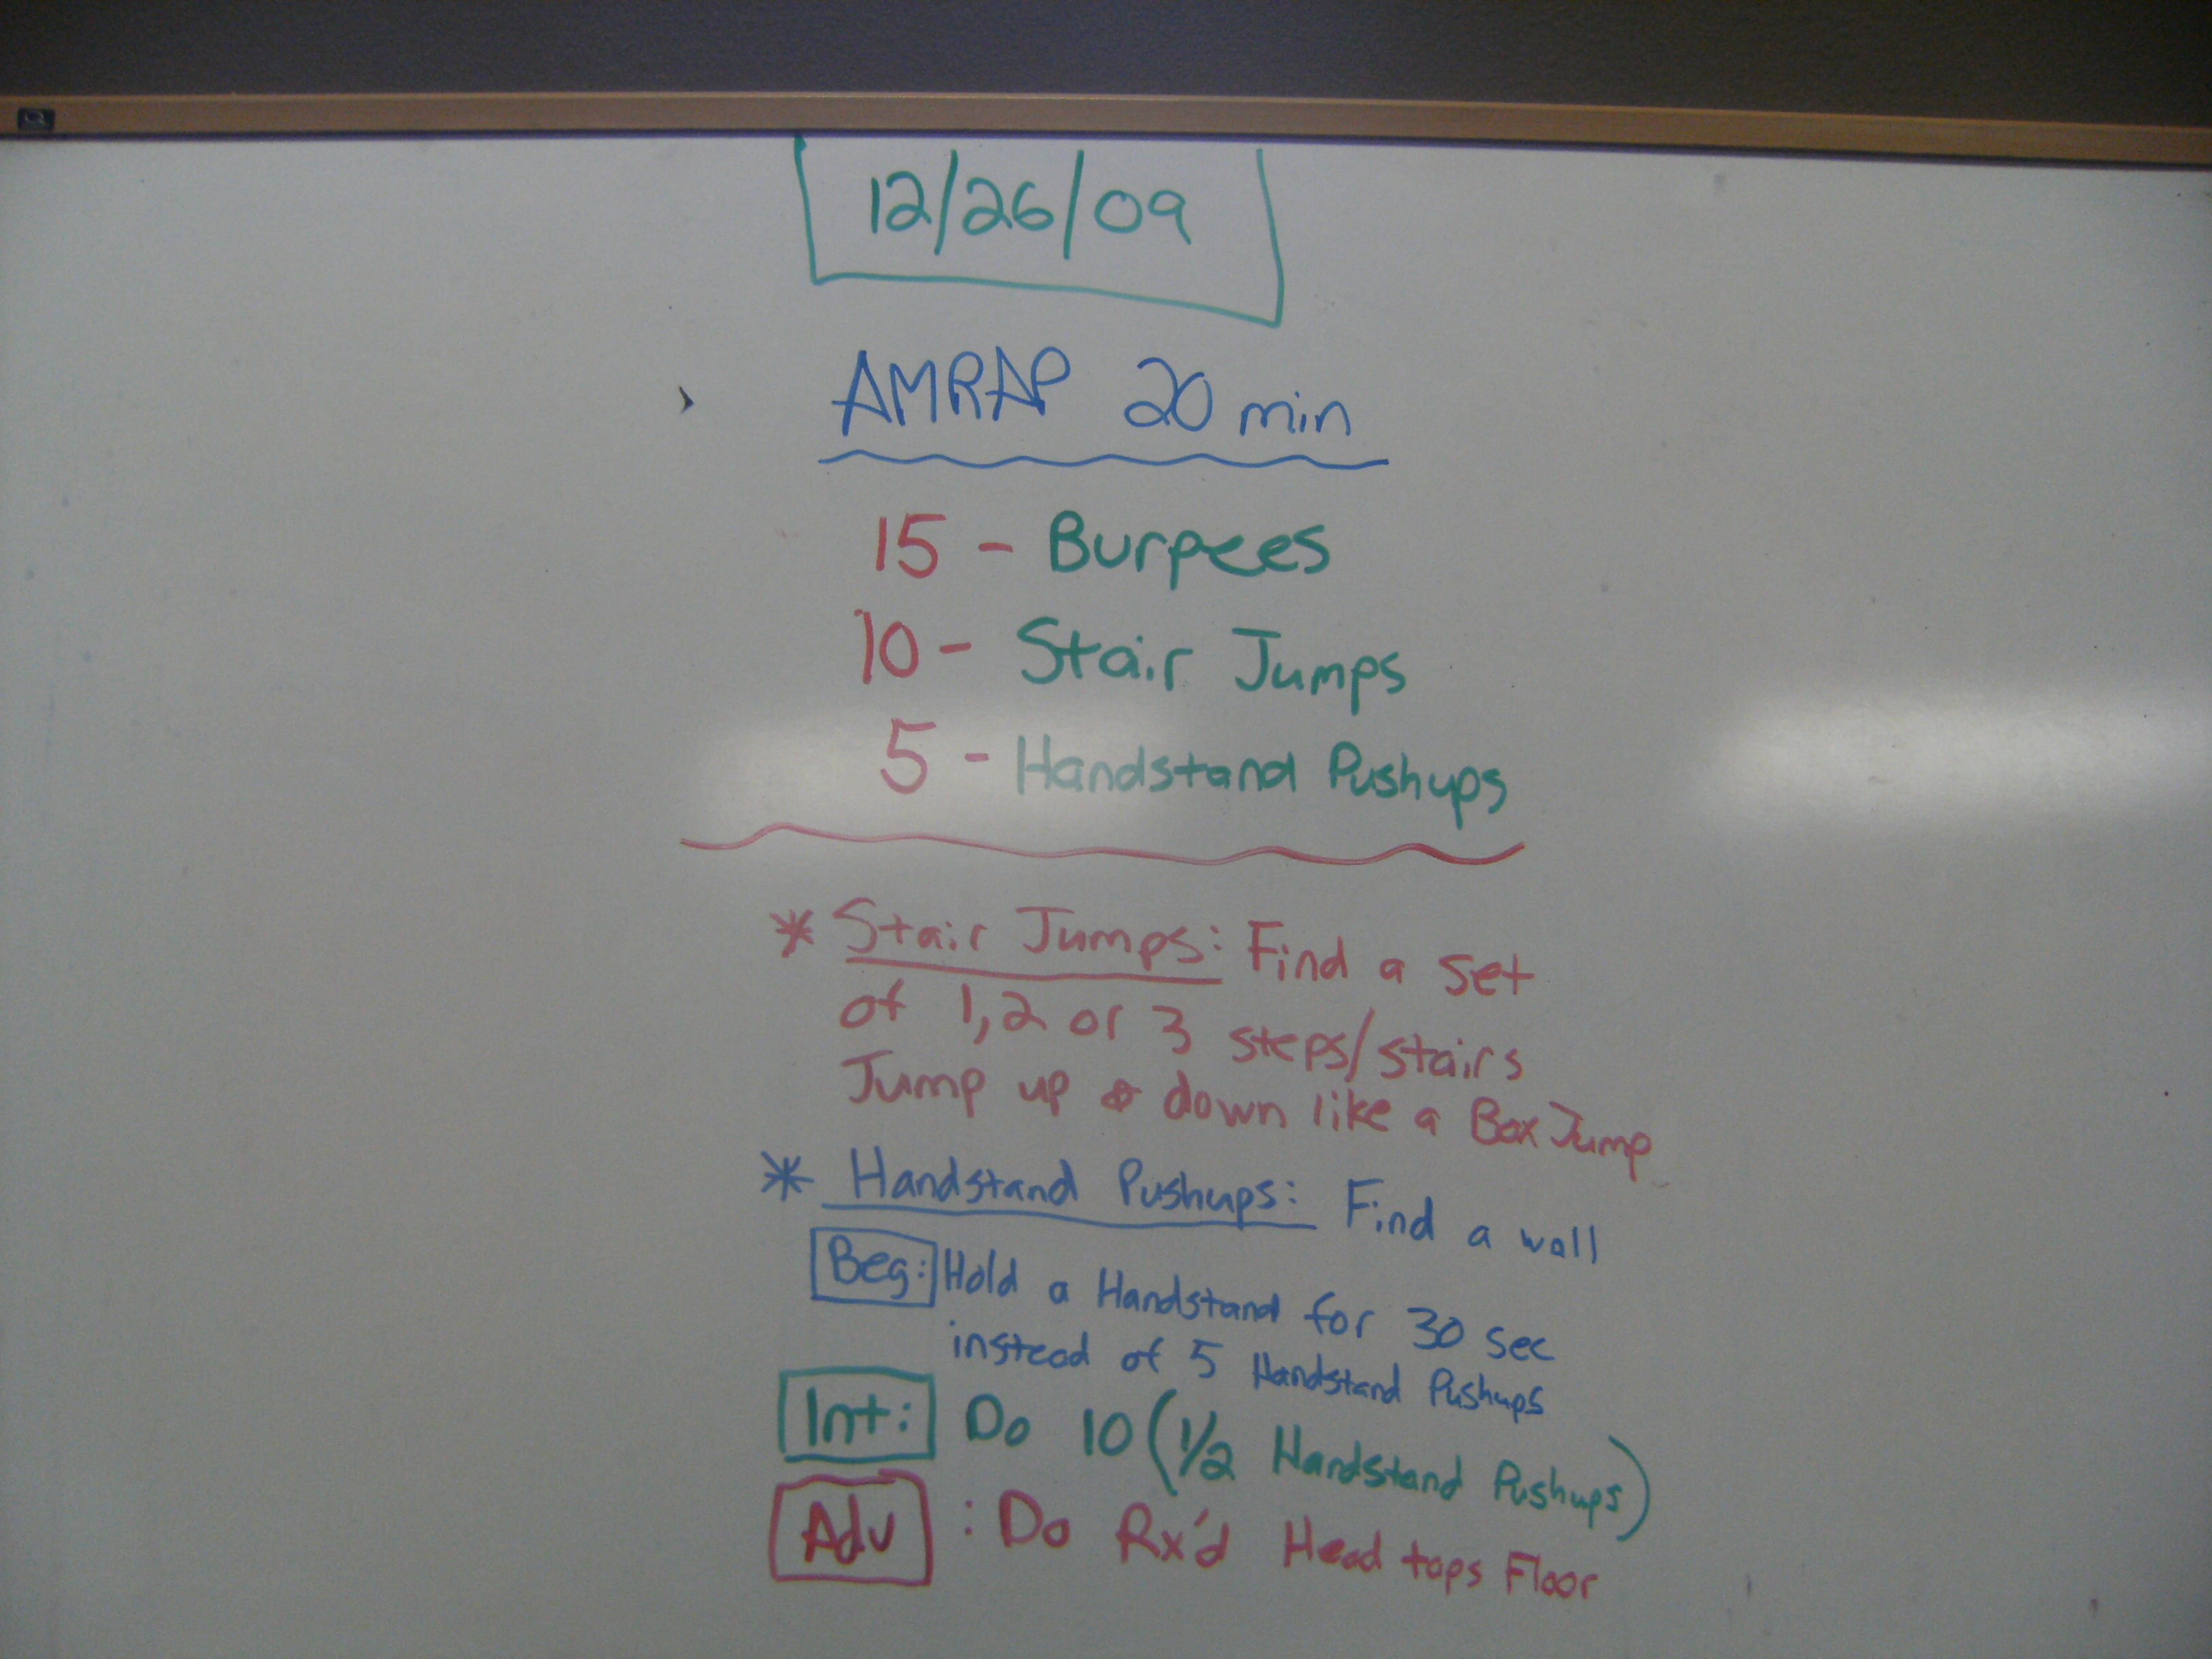 12/26/09
AMRAP 20 min
15 - Burpees
10 - Stair Jumps
5 - Handstand Pushups
* Stair Jumps: Find a set
of 1,2 or 3 steps/stairs
Jump up & down like a Box Jump
* Handstand Pushups: Find a wall
Beg: Hold a Handstand for 30 sec
instead of 5 Handstand Pushups
Int: Do 10 (1/2 Handstand Pushups)
Adv : Do Rx'd Head taps Floor